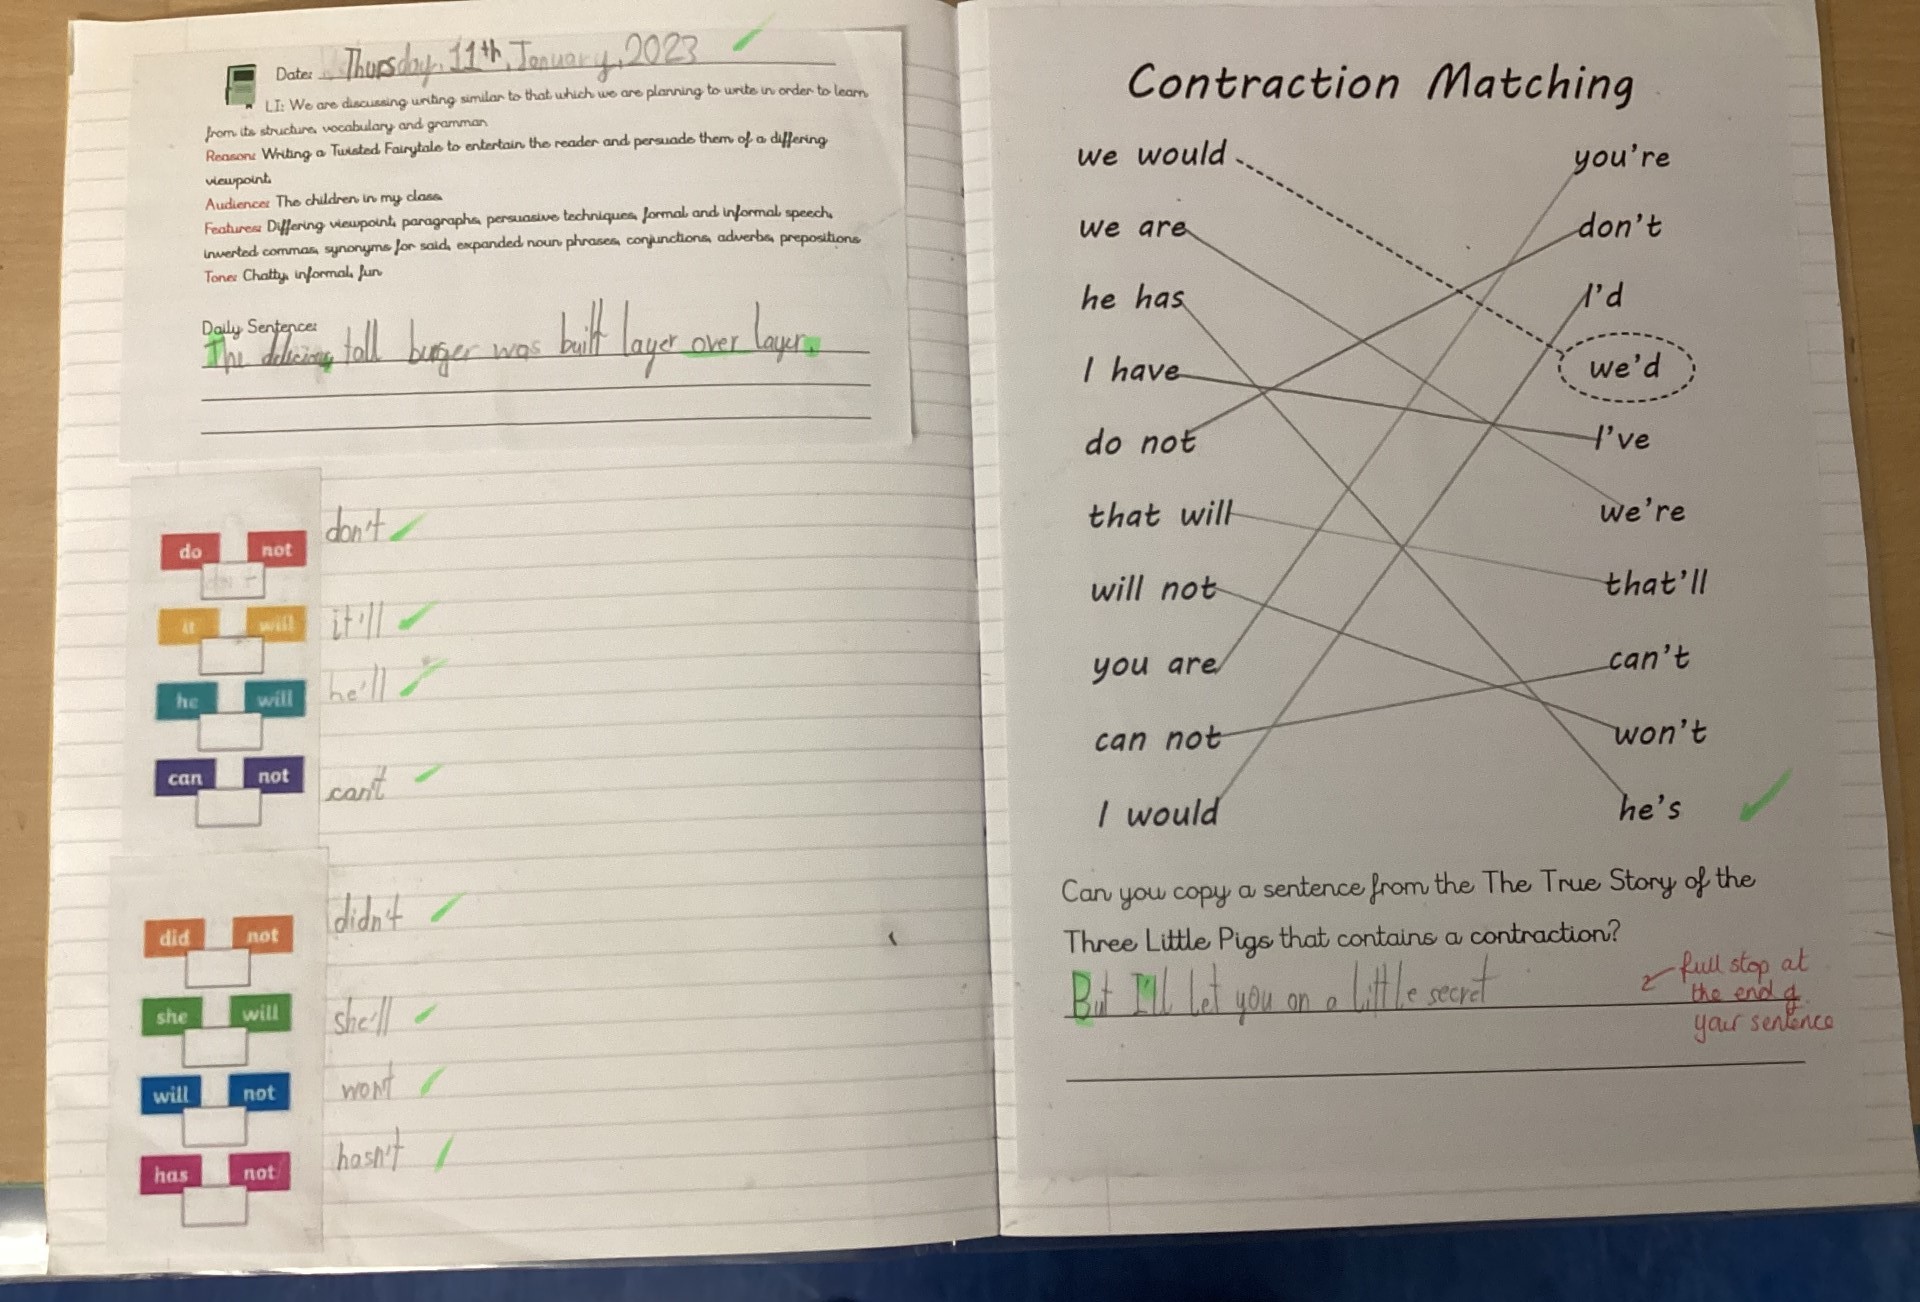 Date: Thursday, 11th, January, 2023
LI: We are discussing writing similar to that which we are planning to write in order to learn
from its structure, vocabulary and grammar.
Reason: Writing a Twisted Fairytale to entertain the reader and persuade them of a differing
viewpoint.
Audience: The children in my class.
Features: Differing viewpoint, paragraphs, persuasive techniques, formal and informal speech,
inverted commas, synonyms for said, expanded noun phrases, conjunctions, adverbs, prepositions
Tone: Chatty, informal, fun
Daily Sentence:
The delicious, tall burger was built layer over layer.
do not don't
it will it'll
he will he'll
can not can't
did not didn't
she will she'll
will not won't
has not hasn't
Contraction Matching
we would you're
we are don't
he has I'd
I have we'd
do not I've
that will we're
will not that'll
you are can't
can not won't
I would he's
Can you copy a sentence from the The True Story of the
Three Little Pigs that contains a contraction?
But I'll let you on a little secret
full stop at
the end of
your sentence